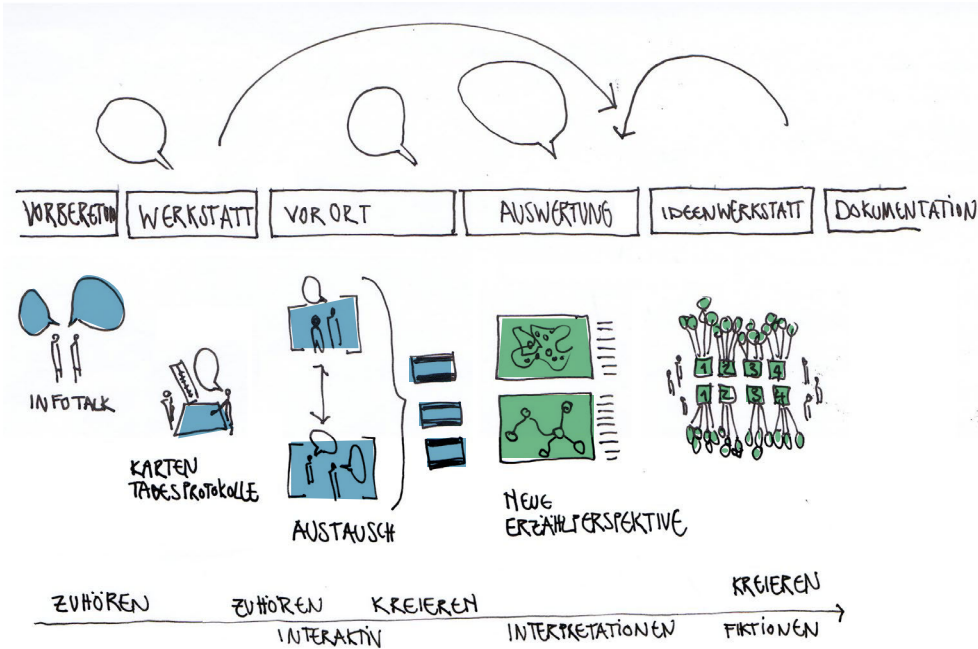 VORBEREITUN
WERKSTATT
VOR ORT
AUSWERTUNG
IDEENWERKSTATT
DOKUMENTATION
INFOTALK
KARTEN
TAGESPROTOKOLLE
AUSTAUSCH
NEUE
ERZÄHLPERSPEKTIVE
1 2 3 4
1 2 3 4
ZUHÖREN
ZUHÖREN
KREIEREN
KREIEREN
INTERAKTIV
INTERPRETATIONEN
FIKTIONEN